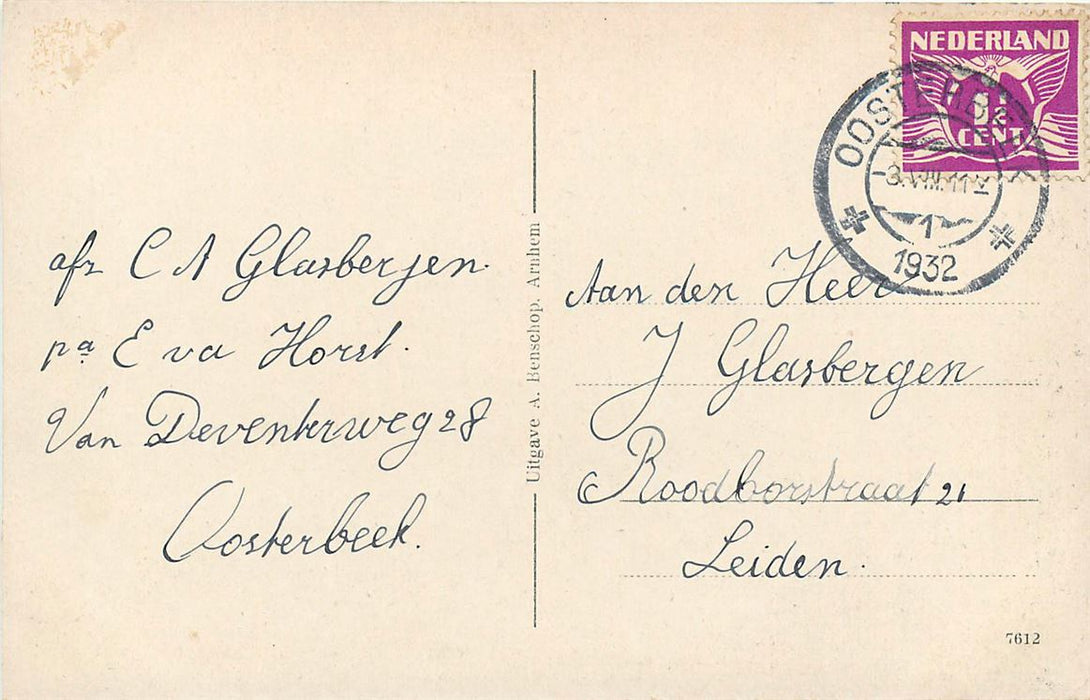 NEDERLAND
1½
CENT
OOSTERBEEK
1
1932
afz C A Glasbergen.
pa E va Horst.
Van Deventerweg 28
Oosterbeek.
Uitgave A. Benschop. Arnhem
Aan den Heer
J Glasbergen
Roodborstraat 21
Leiden.
7612